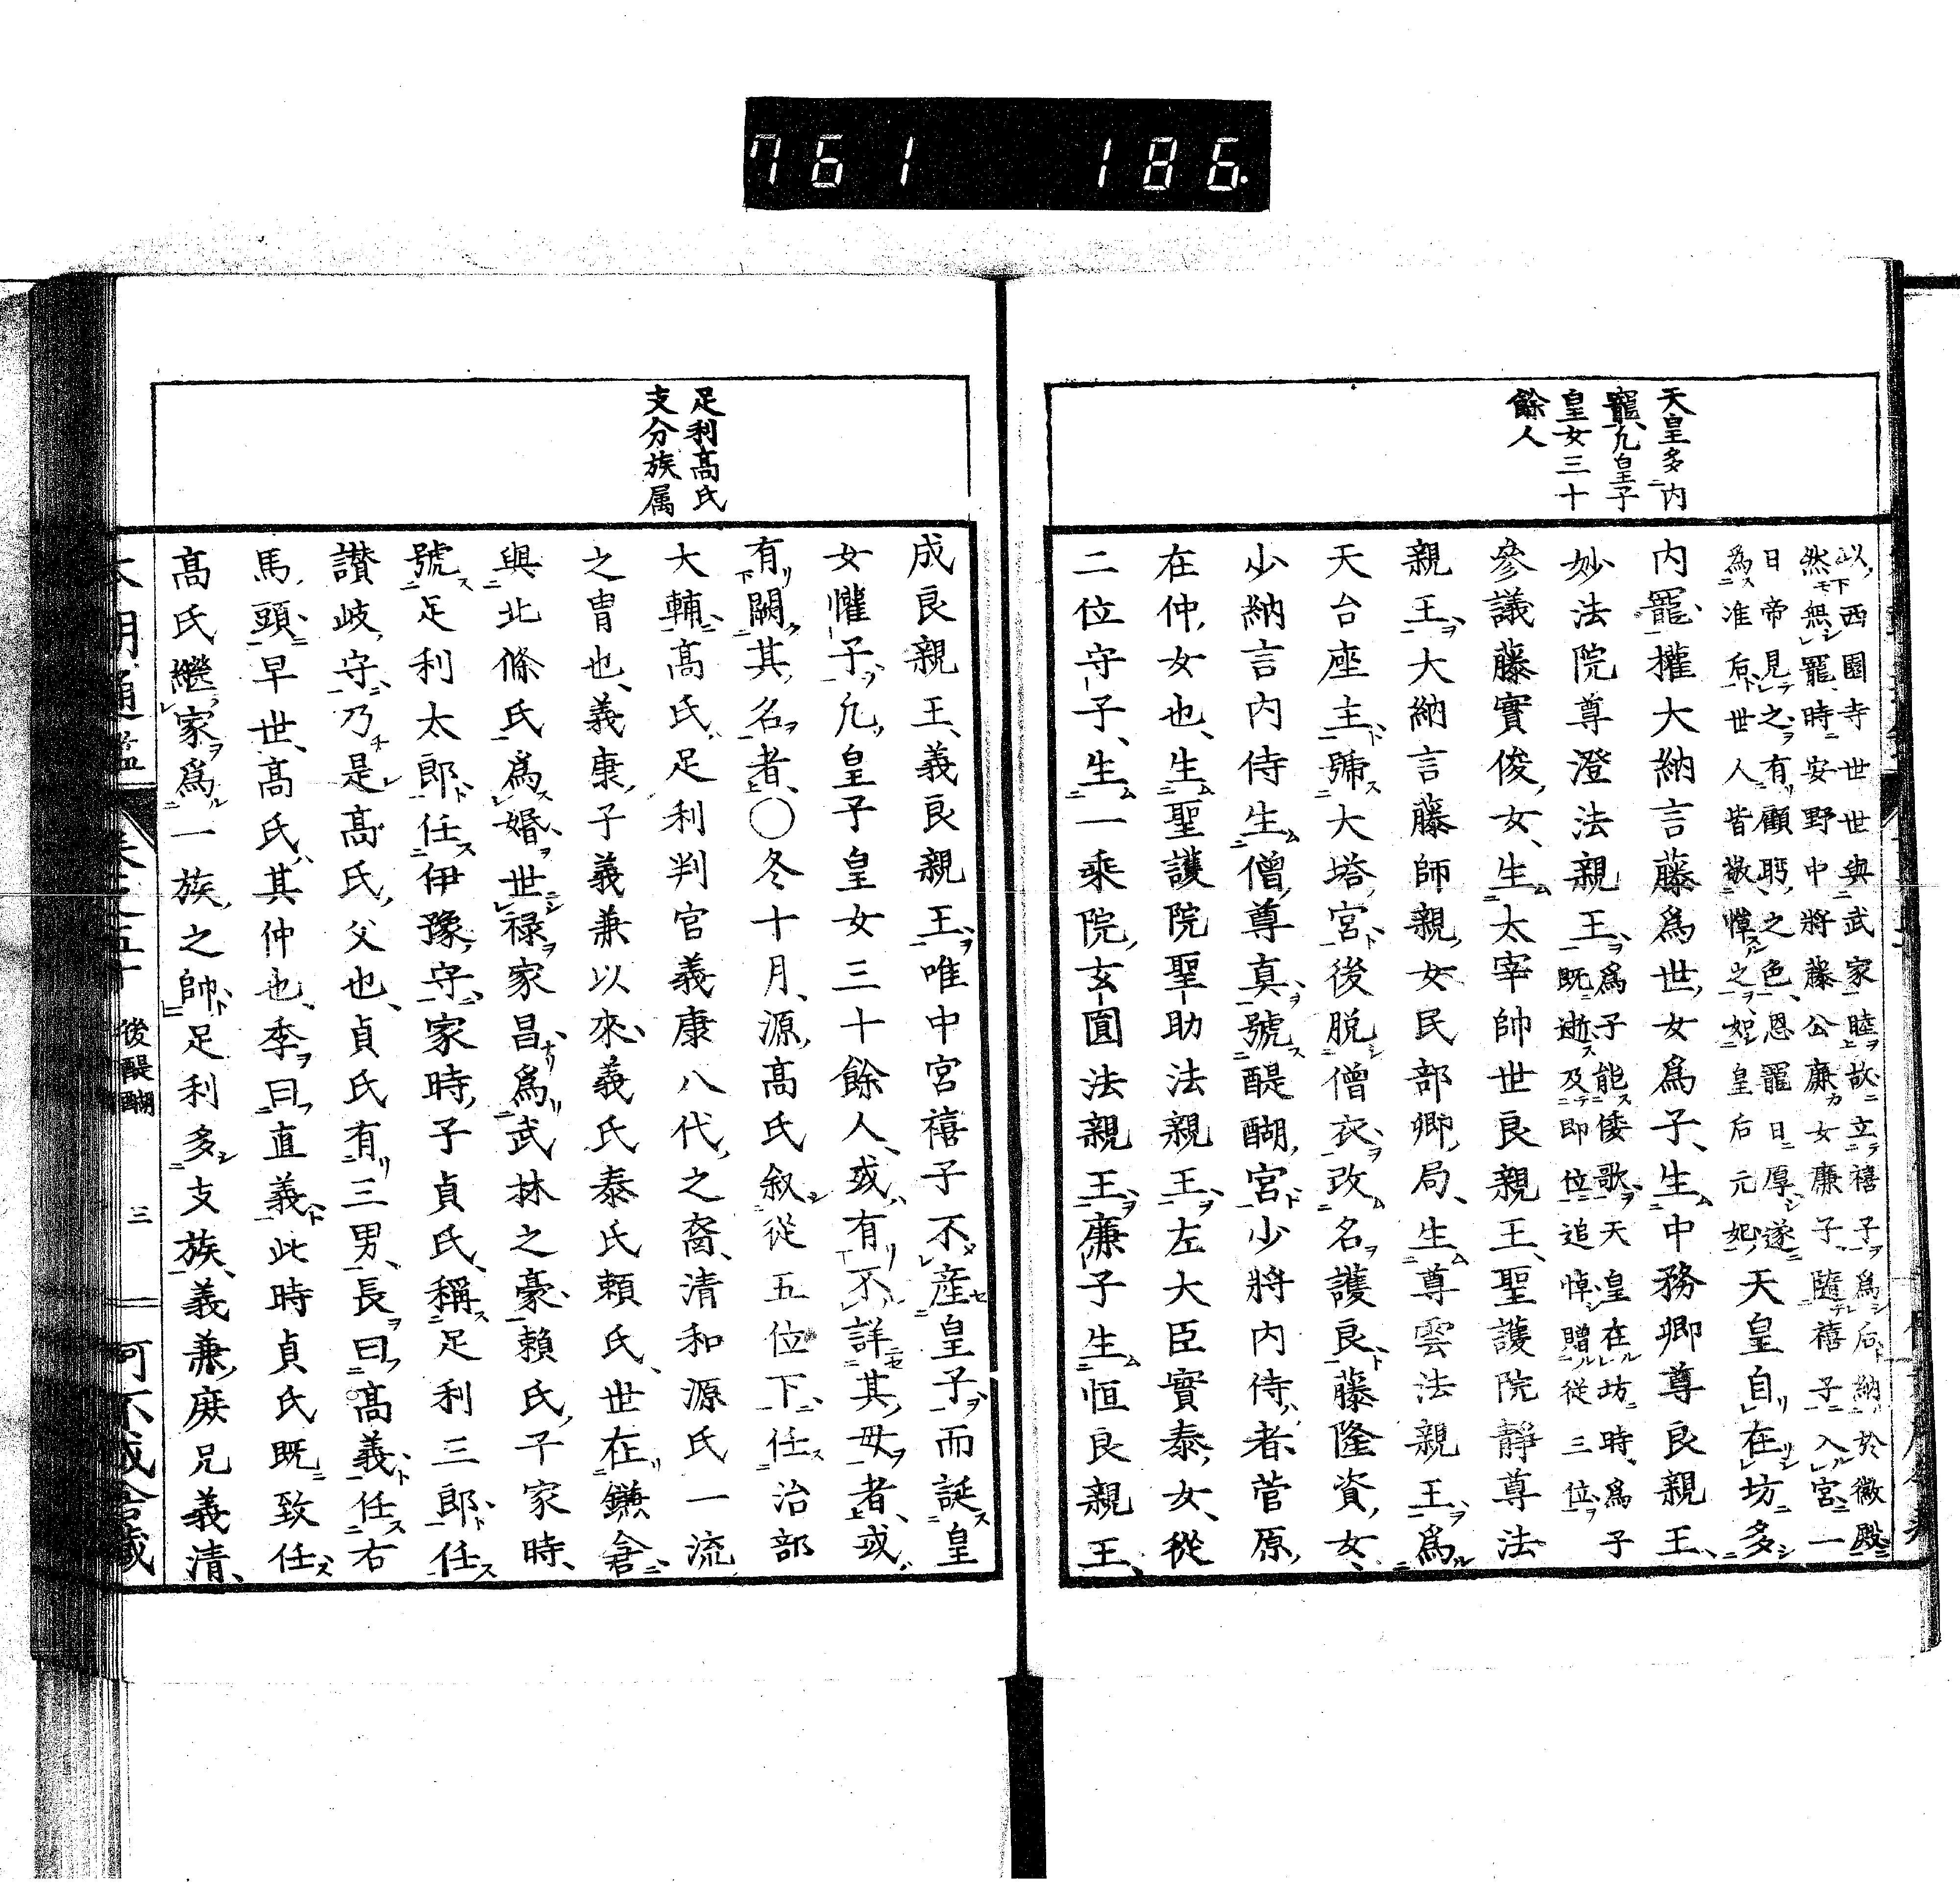 761 186.
天皇多内
寵凡皇子
皇女三十
餘人
以西園寺世世與武家睦故立禧子爲后納於徽殿
然無寵時安野中將藤公廉女廉子隨禧子入宮一
日帝見之有顧眄之色恩寵日厚遂
爲准后世人皆敬憚之如皇后元妃天皇自在坊多
内寵權大納言藤爲世女爲子生中務卿尊良親王
妙法院尊澄法親王爲子能倭歌天皇在坊時爲子
既逝及即位追悼贈從三位
參議藤實俊女生太宰帥世良親王聖護院靜尊法
親王大納言藤師親女民部卿局生尊雲法親王爲
天台座主號大塔宮後脱僧衣改名護良藤隆資女
少納言内侍生僧尊真號醍醐宮少將内侍者菅原
在仲女也生聖護院聖助法親王左大臣實泰女從
二位守子生一乘院玄圓法親王廉子生恒良親王
足利高氏
支分族属
成良親王義良親王唯中宮禧子不産皇子而誕皇
女懽子凡皇子皇女三十餘人或有不詳其母者或
有闕其名者〇冬十月源高氏叙從五位下任治部
大輔高氏足利判官義康八代之裔清和源氏一流
之胄也義康子義兼以來義氏泰氏頼氏世在鎌倉
與北條氏爲婚世禄家昌爲武林之豪頼氏子家時
號足利太郎任伊豫守家時子貞氏稱足利三郎任
讃岐守乃是高氏父也貞氏有三男長曰高義任右
馬頭早世高氏其仲也季曰直義此時貞氏既致任
高氏繼家爲一族之帥足利多支族義兼庶兄義清
後醍醐 三